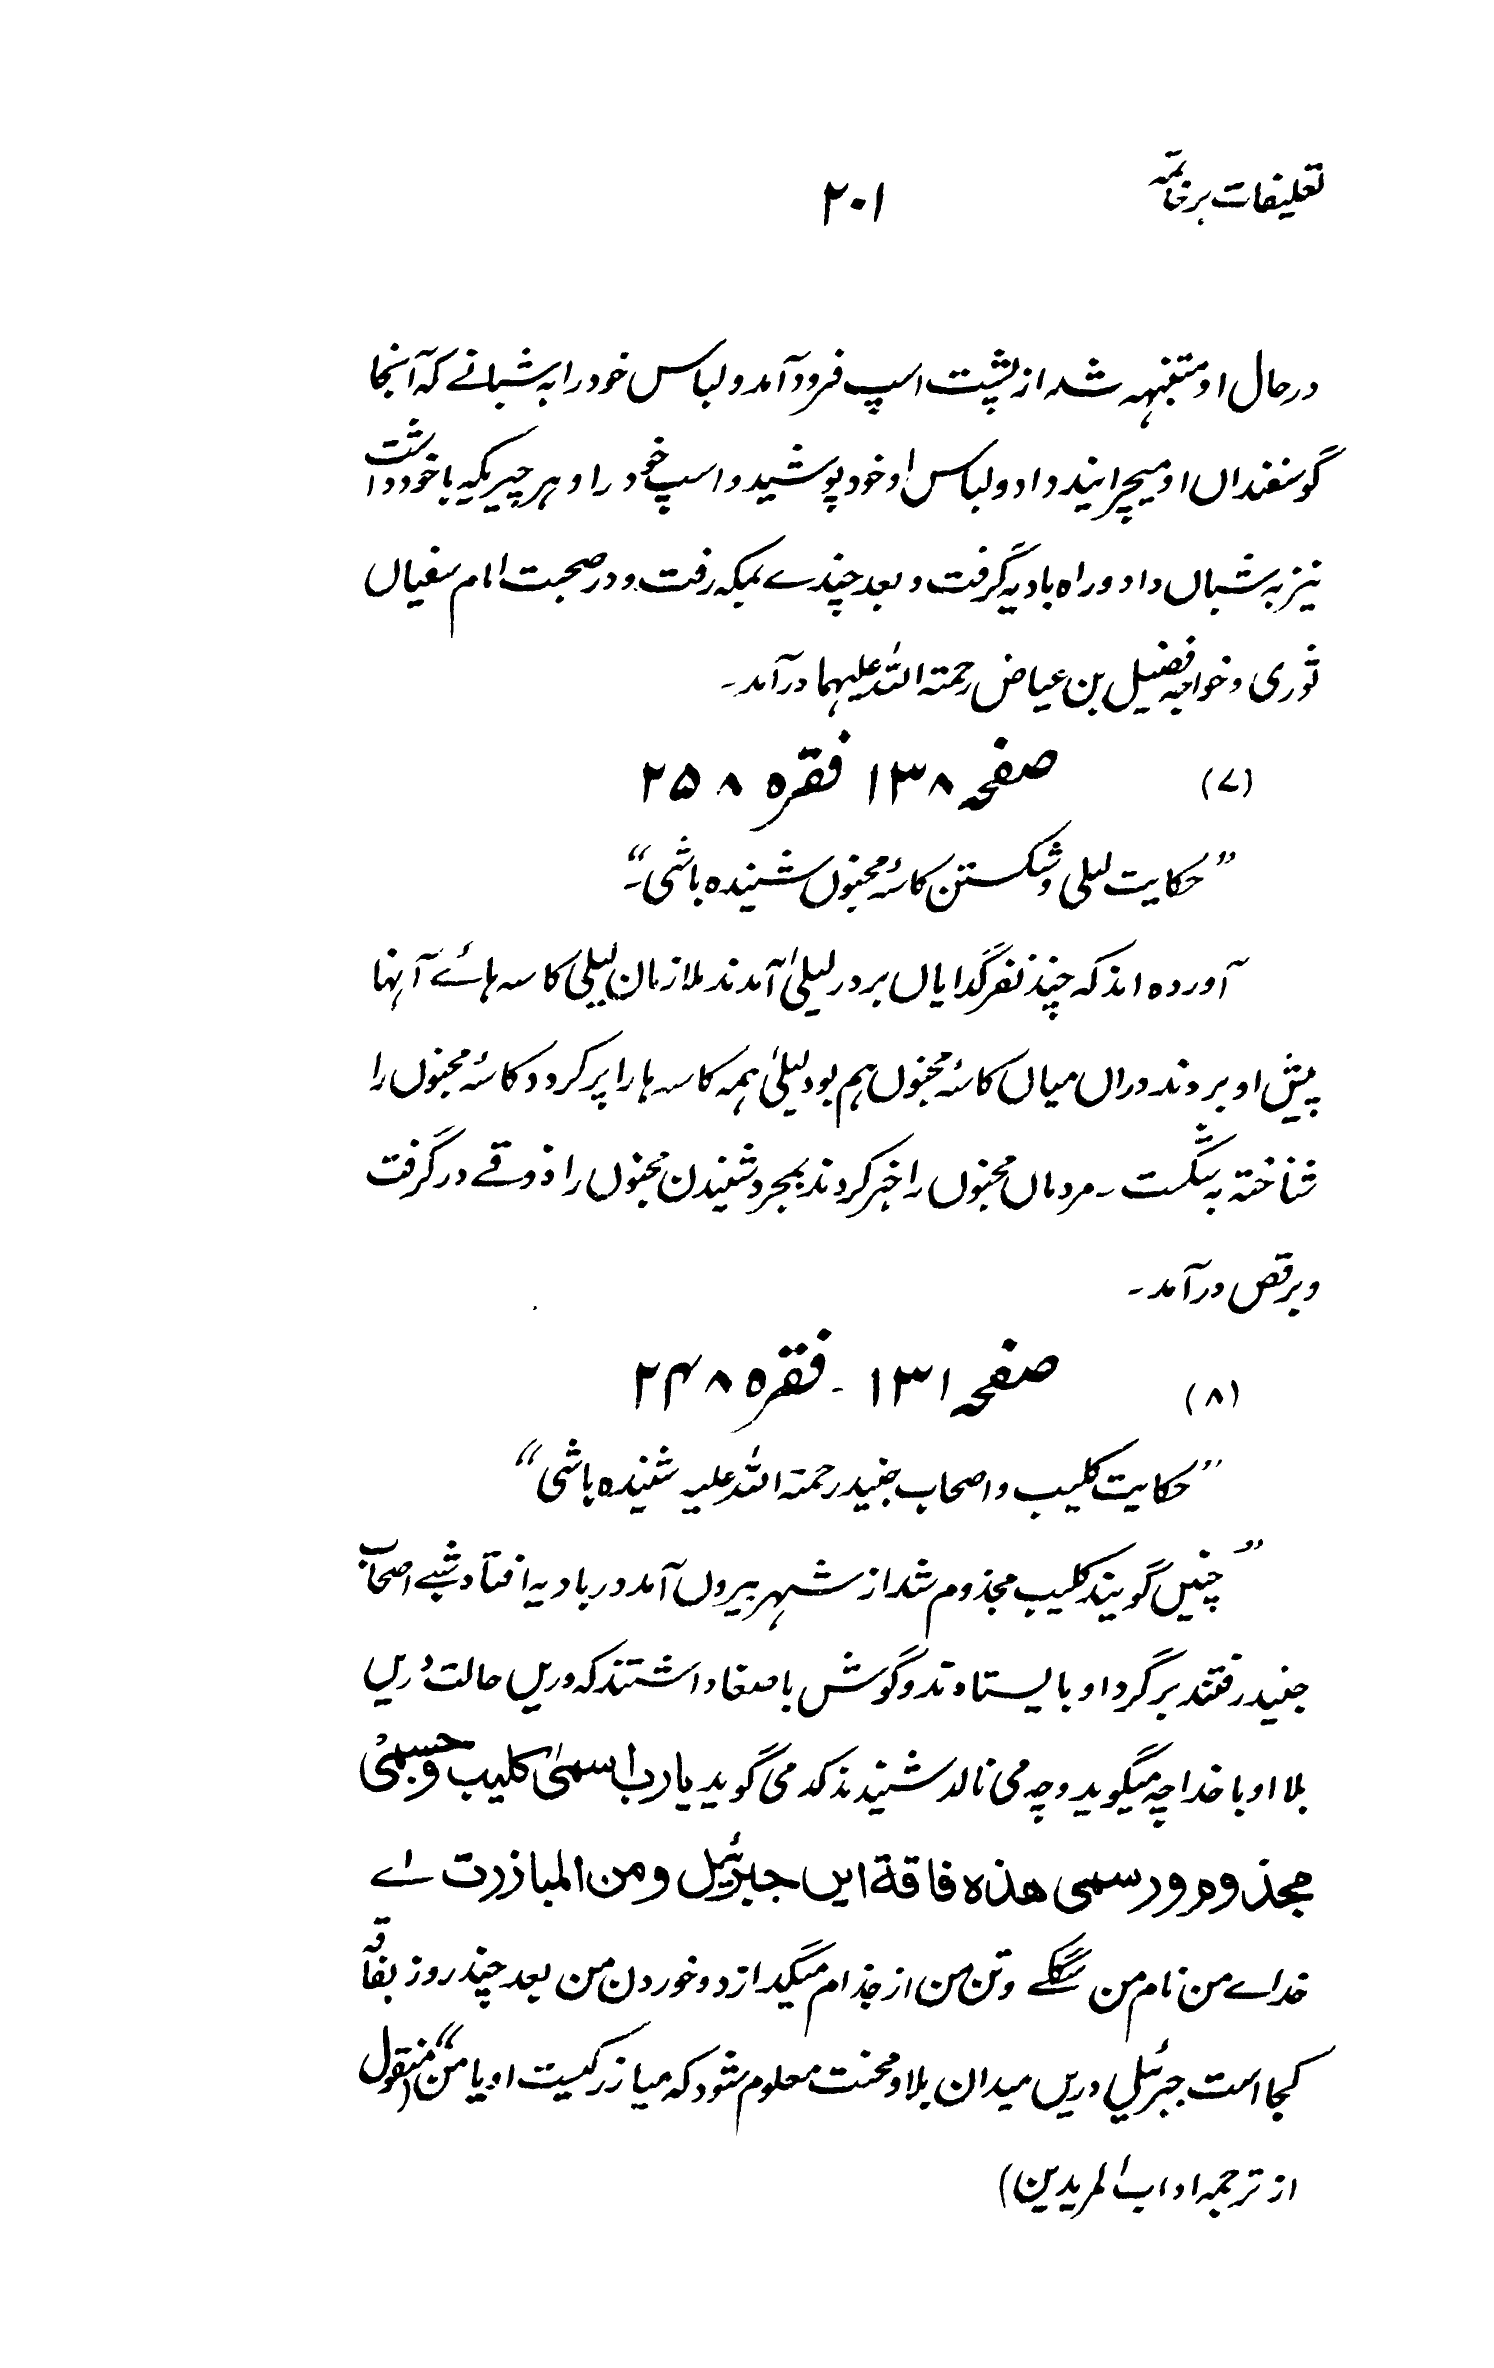 تعلیقات بر خاتمہ
۲۰۱
در حال او متنبہہ شد از پشت اسپ فرود آمد و لباس خود را بہ شبانے کہ آنجا
گوسفنداں او میچرانید داد و لباس او خود پوشید و اسپ خود را و ہر چیزیکہ با خود داشت
نیز بہ شباں داد و راہ بادیہ گرفت و بعد چندے بمکہ رفت و در صحبت امام سفیاں
ثوری و خواجہ فضیل بن عیاض رحمتہ اللہ علیہما در آمد۔
(۷) صفحہ ۱۳۸ فقرہ ۲۵۸
”حکایت لیلی و شکستن کاسۂ مجنوں شنیدہ باشی“۔
آوردہ اند کہ چند نفر گدایاں بر در لیلیٰ آمدند ملازمان لیلی کاسہ ہائے آنہا
پیش او بردند دراں میاں کاسۂ مجنوں ہم بود لیلیٰ ہمہ کاسہ ہا را پر کرد و کاسۂ مجنوں را
شناختہ بشکست۔ مردماں مجنوں را خبر کردند بمجرد شنیدن مجنوں را ذوقے در گرفت
و برقص در آمد۔
(۸) صفحہ ۱۳۱۔ فقرہ ۲۴۸
”حکایت کلیب و اصحاب جنید رحمتہ اللہ علیہ شنیدہ باشی“
”چنیں گویند کلیب مجذوم شد از شہر بیروں آمد در بادیہ افتاد شبے اصحاب
جنید رفتند بر گرد او بایستادند و گوش باصغا داشتند کہ دریں حالت و ریں
بلا او با خدا چہ میگوید و چہ می نالد شنیدند کہ می گوید یا رب اسمی کلیب و جسمی
مجذوم و رسمی ھذہ فاقة این جبرئیل و من المبازرت اے
خداے من نام من سگکے و تن من از جذام میگدازد و خوردن من بعد چند روز بفاقہ
کجا است جبرئیل دریں میدان بلا و محنت معلوم شود کہ مبازر کیست او یا من“ (منقول
از ترجمہ اداب المریدین)